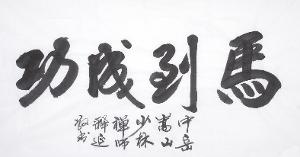 馬到成功
中岳
嵩山
少林
禅师
釋延